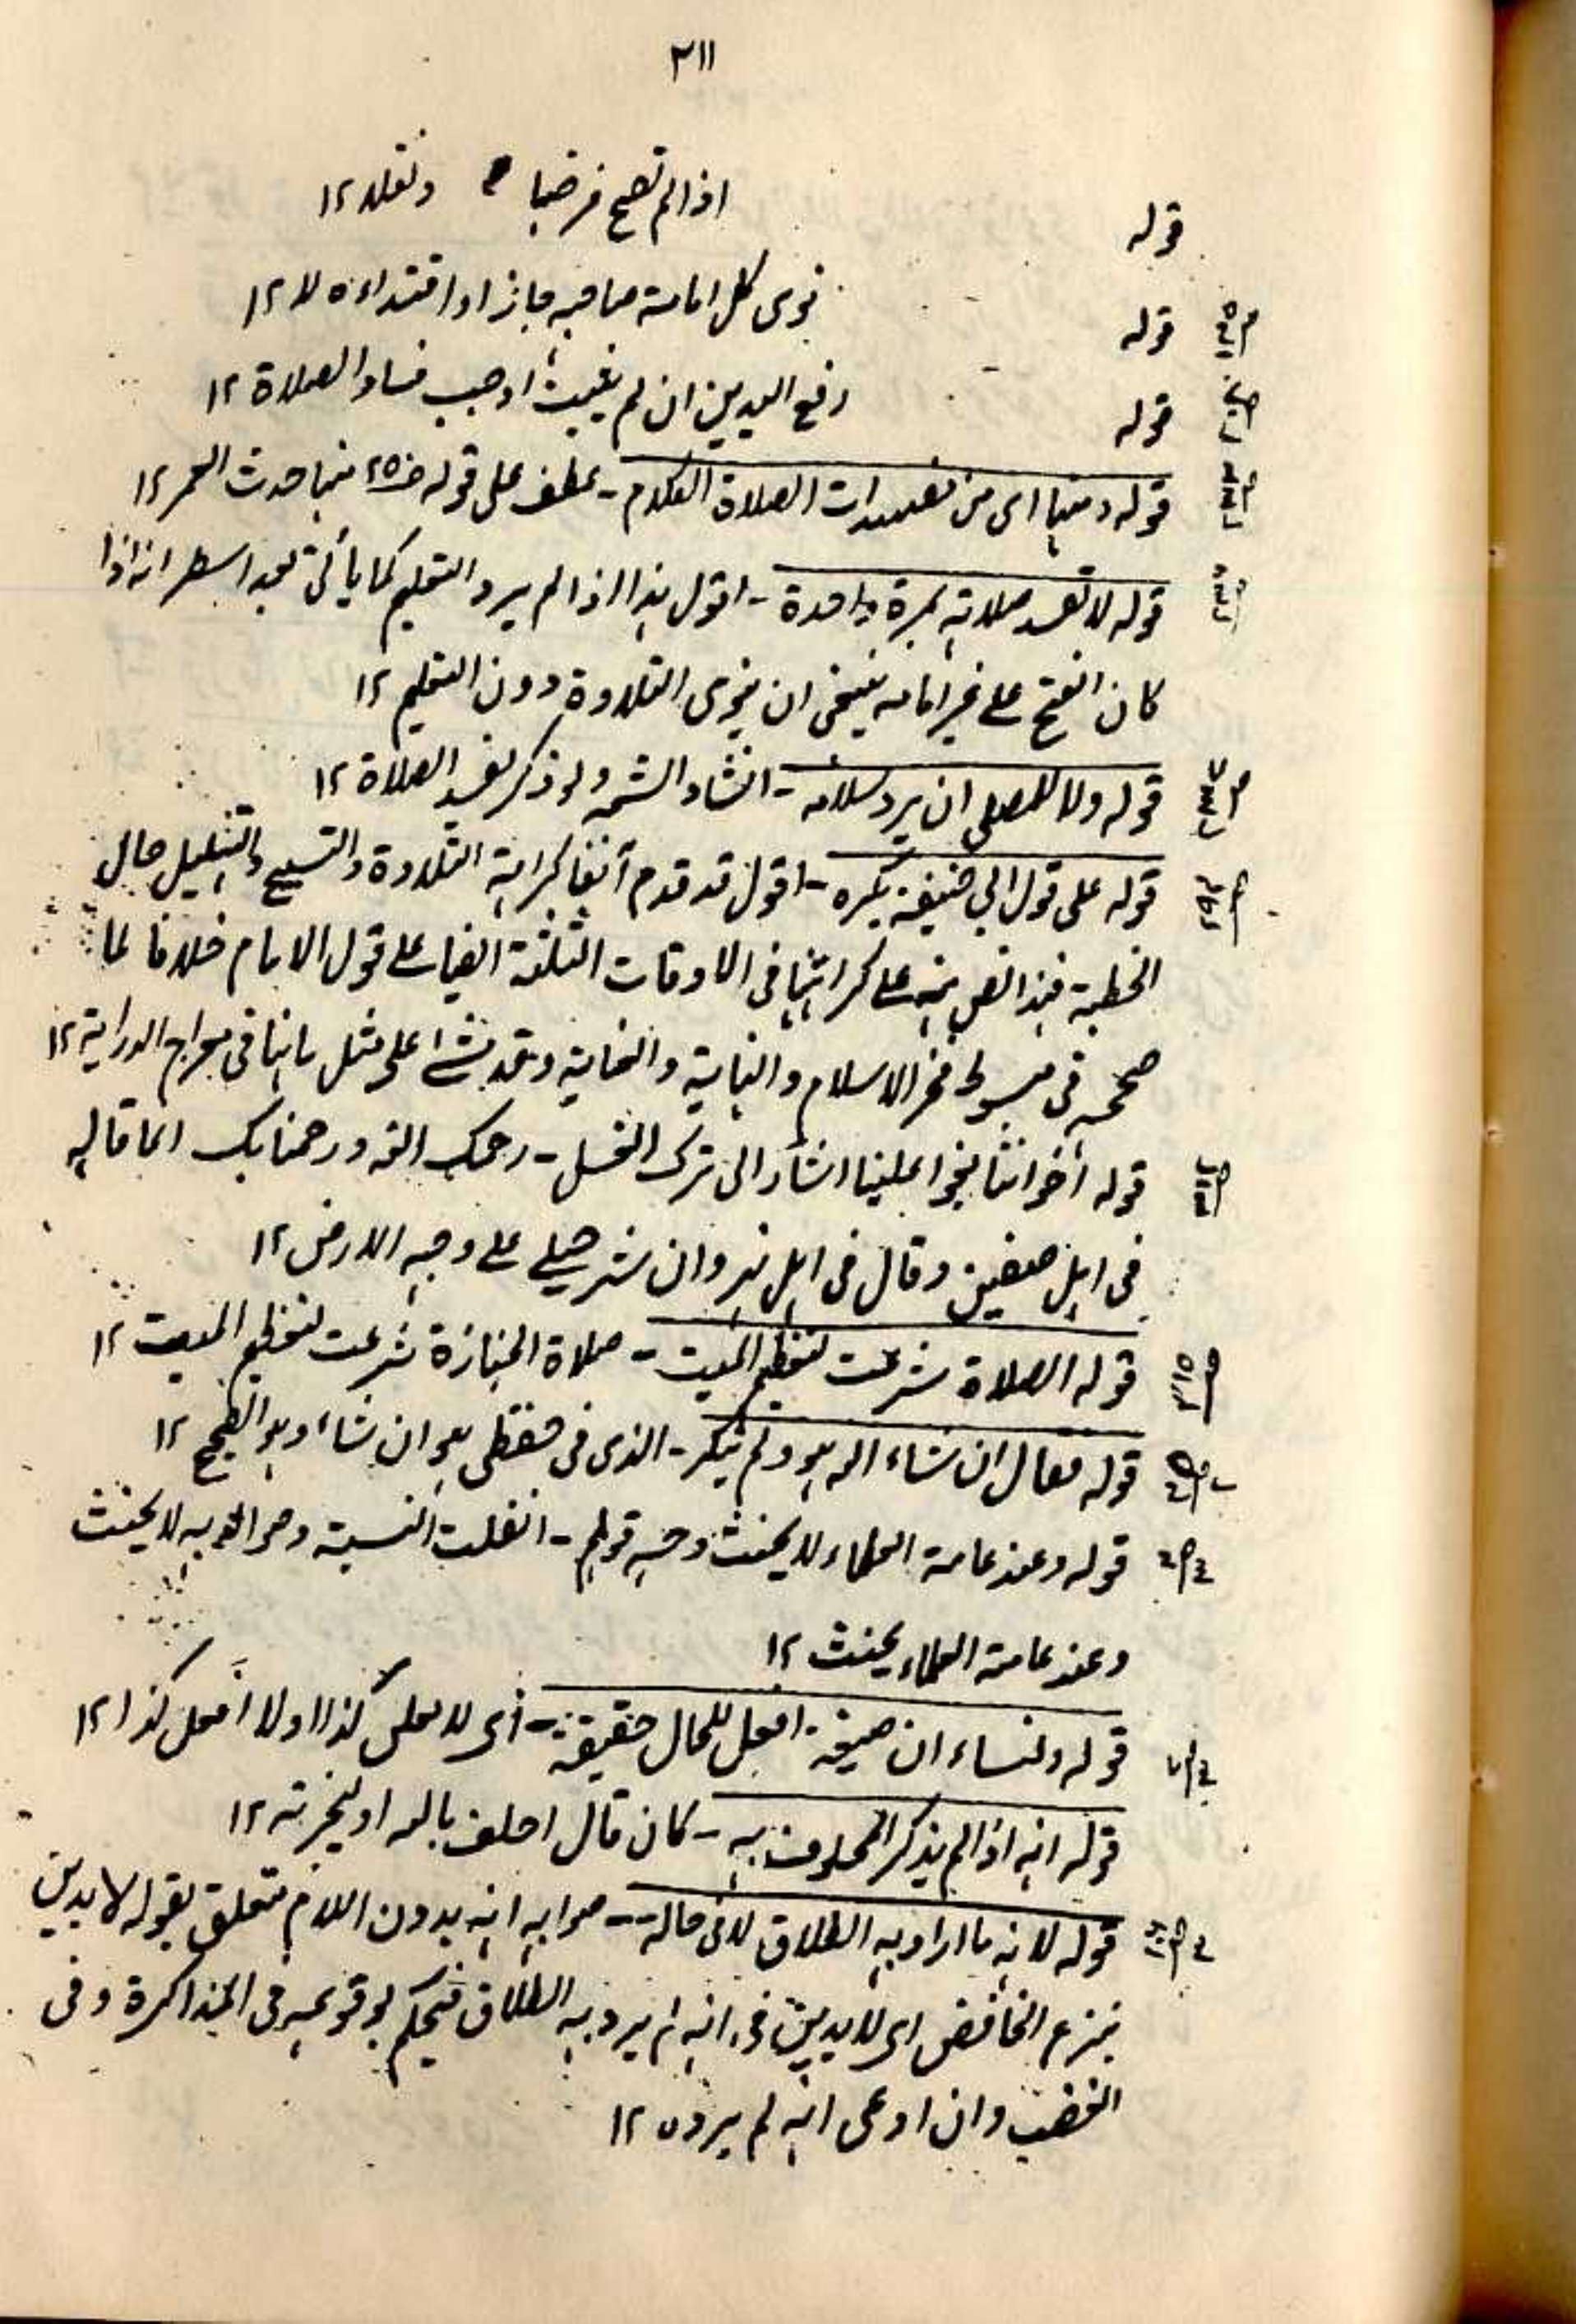 ٢١١
قوله اذا لم تصح فرضا ونفله ١٢
قوله نوى كل امامة صاحبه جاز او اقتداءه لا ١٢
قوله رفع اليدين ان لم يغيث اوجب فساد الصلاة ١٢
قوله ومنها اى من مفسدات الصلاة الكلام - عطف على قوله منها حدث العمد ١٢
قوله لا تفسد صلاته بمرة واحدة - اقول هذا اذا لم يرد التعليم كما يأتى بعد اسطر انه اذا
كان الفتح على غير امامه ينبغى ان ينوى التلاوة دون التعليم ١٢
قوله ولا للمصلى ان يرد سلامه - انشاد الشعر ولو ذكر يفسد الصلاة ١٢
قوله على قول ابي حنيفة يكره - اقول قد قدم آنفا كراهة التلاوة والتسبيح والتهليل حال
الخطبة فهذا نص منه على كراهتها فى الاوقات الثلثة ايضا على قول الامام خلافا لما
صححه فى مبسوط فخر الاسلام والنهاية والعناية وقد مشى على مثل ما هنا فى معراج الدراية ١٢
قوله اخواننا بغوا علينا اشار الى ترك الغسل - رحمك الله ورحمنا بك انما قاله
فى اهل صفين وقال فى اهل نهروان شر حيلى على وجه الارض ١٢
قوله الصلاة شرعت لتعظيم الميت - صلاة الجنازة شرعت لتعظيم الميت ١٢
قوله فقال ان شاء الله هو ولم ينكر - الذى فى حفظى هو ان شاء وهو الصحيح ١٢
قوله وعند عامة العلماء لا يحنث وجه قولهم - انقلبت النسبة وصوابه لا يحنث
وعند عامة العلماء يحنث ١٢
قوله ولنا ان صيغة افعل للحال حقيقة - أى لا على كذا او لا أفعل كذا ١٢
قوله انه اذا لم يذكر المحلوف به - كان قال احلف بالله او لعزته ١٢
قوله لانه ما اراد به الطلاق لان حاله - صوابه انه بدون اللام متعلق بقوله لا يدين
بنزع الخافض اى لا يدين فى انه لم يرد به الطلاق فيحكم بوقوعه فى المذاكرة وفى
الغضب وان ادعى انه لم يرده ١٢